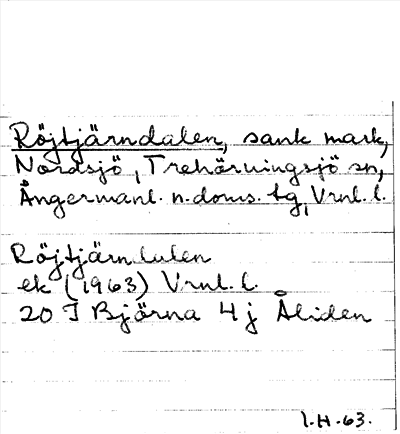 Röjtjärndalen, sank mark,
Nordsjö, Trehörningsjö sn,
Ångermanl. n. doms. tg, Vrnl. l.
Röjtjärndalen
ek (1963) Vrnl. l.
20 I Björna 4 j Åliden
I.H.63.